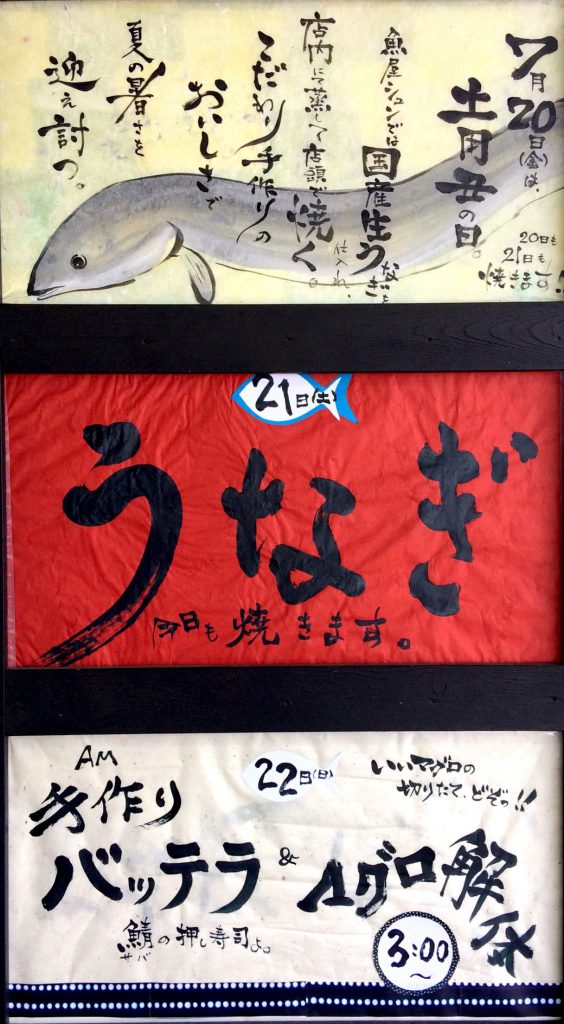 7月20日(金)は、
土用丑の日。
魚屋シュンでは
国産生うなぎを
仕入れ、
店内にて蒸して店頭で焼く。
こだわり手作りの
おいしさで
夏の暑さを
迎え討つ。
20日も
21日も
焼きまーす!!
21日(土)
うなぎ
今日も焼きます。
22日(日)
AM
手作り
バッテラ
鯖の押し寿司よ。
サバ
&
マグロ解体
3:00~
いいマグロの
切りたて、どぞっ!!